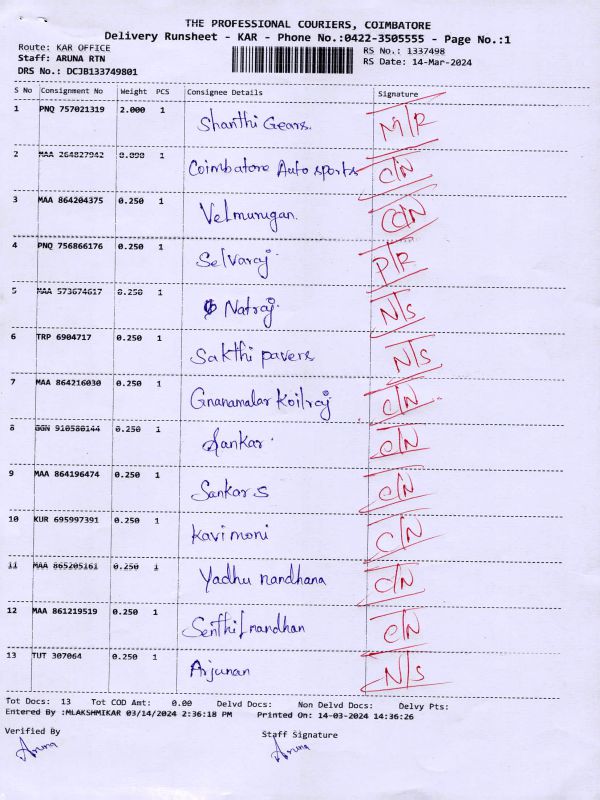 THE PROFESSIONAL COURIERS, COIMBATORE
Delivery Runsheet - KAR - Phone No.:0422-3505555 - Page No.:1
Route: KAR OFFICE RS No.: 1337498
Staff: ARUNA RTN RS Date: 14-Mar-2024
DRS No.: DCJB133749801
S No Consignment No Weight PCS Consignee Details Signature
1 PNQ 757021319 2.000 1 Shanthi Gears. M/R
2 MAA 264827942 0.090 1 Coimbatore Auto sports C/N
3 MAA 864204375 0.250 1 Velmurugan. C/N
4 PNQ 756866176 0.250 1 Selvaraj. P/R
5 MAA 573674617 0.250 1 Natraj. N/S
6 TRP 6904717 0.250 1 Sakthi pavers N/S
7 MAA 864216030 0.250 1 Gnanamalar Koilraj C/N
8 GGN 910580144 0.250 1 Sankar. C/N
9 MAA 864196474 0.250 1 Sankar S C/N
10 KUR 695997391 0.250 1 Kavimoni C/N
11 MAA 865205161 0.250 1 Yadhu nandhana C/N
12 MAA 861219519 0.250 1 Senthil nandhan C/N
13 TUT 307064 0.250 1 Arjunan N/S
Tot Docs: 13 Tot COD Amt: 0.00 Delvd Docs: Non Delvd Docs: Delvy Pts:
Entered By :MLAKSHMIKAR 03/14/2024 2:36:18 PM Printed On: 14-03-2024 14:36:26
Verified By Staff Signature
Aruna Aruna